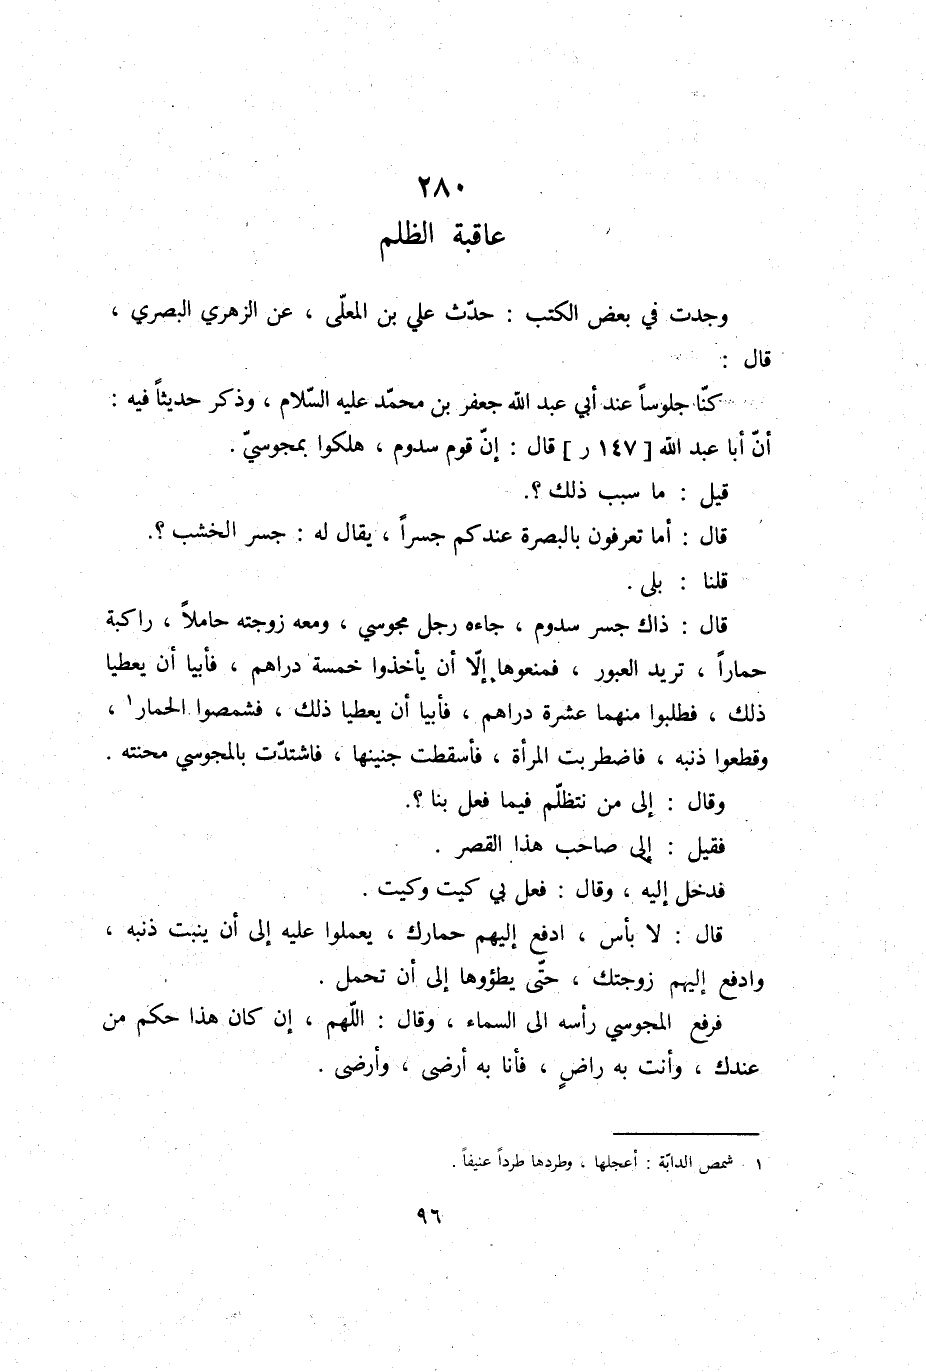 ٢٨٠
عاقبة الظلم
وجدت في بعض الكتب : حدّث علي بن المعلّى ، عن الزهري البصري ،
قال :
كنّا جلوساً عند أبي عبد الله جعفر بن محمّد عليه السّلام ، وذكر حديثاً فيه :
أنّ أبا عبد الله [ ١٤٧ ر ] قال : إنّ قوم سدوم ، هلكوا بمجوسيّ .
قيل : ما سبب ذلك ؟.
قال : أما تعرفون بالبصرة عندكم جسراً ، يقال له : جسر الخشب ؟.
قلنا : بلى .
قال : ذاك جسر سدوم ، جاءه رجل مجوسي ، ومعه زوجته حاملاً ، راكبة
حماراً ، تريد العبور ، فمنعوها إلّا أن يأخذوا خمسة دراهم ، فأبيا أن يعطيا
ذلك ، فطلبوا منهما عشرة دراهم ، فأبيا أن يعطيا ذلك ، فشمصوا الحمار١ ،
وقطعوا ذنبه ، فاضطربت المرأة ، فأسقطت جنينها ، فاشتدّت بالمجوسي محنته .
وقال : إلى من نتظلّم فيما فعل بنا ؟.
فقيل : إلى صاحب هذا القصر .
فدخل إليه ، وقال : فعل بي كيت وكيت .
قال : لا بأس ، ادفع إليهم حمارك ، يعملوا عليه إلى أن ينبت ذنبه ،
وادفع إليهم زوجتك ، حتّى يطؤوها إلى أن تحمل .
فرفع المجوسي رأسه الى السماء ، وقال : اللّهم ، إن كان هذا حكم من
عندك ، وأنت به راضٍ ، فأنا به أرضى ، وأرضى .
١ شمص الدابّة : أعجلها ، وطردها طرداً عنيفاً .
٩٦